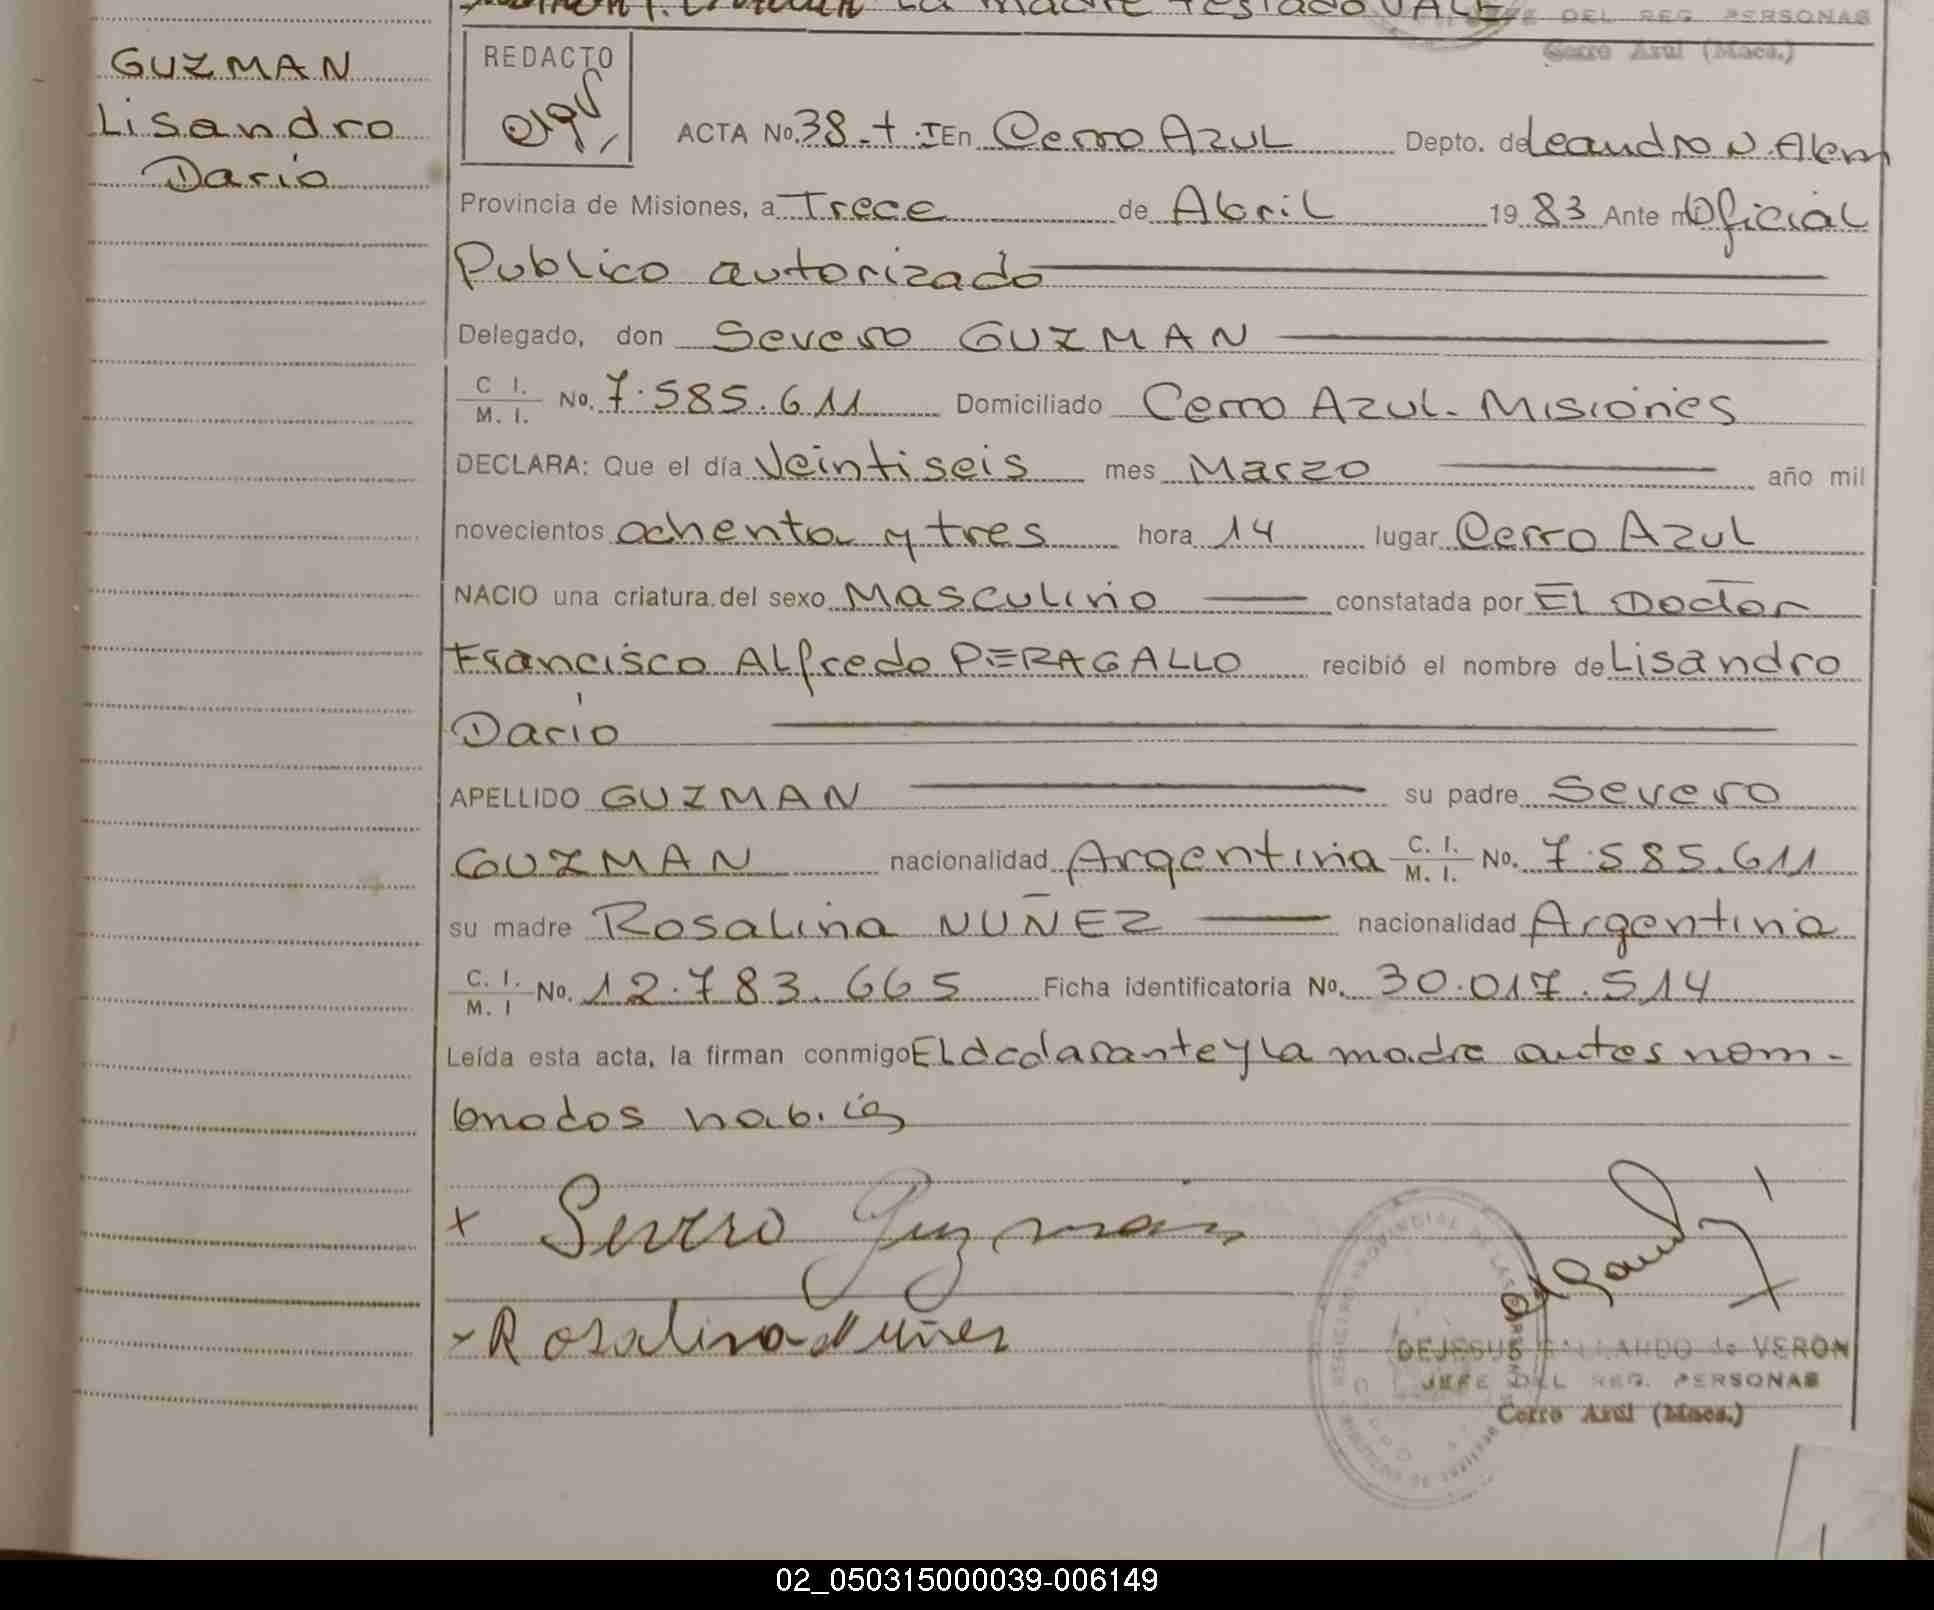 La madre testado VALE
JEFE DEL REG. PERSONAS
Cerro Azul (Mnes.)
GUZMAN
Lisandro
Dario
REDACTO
ACTA No. 38-t.I En Cerro Azul Depto. de Leandro N. Alem
Provincia de Misiones, a Trece de Abril 1983 Ante mi Oficial
Publico autorizado
Delegado, don Severo GUZMAN
C I. M. I. No. 7.585.611 Domiciliado Cerro Azul. Misiones
DECLARA: Que el día Veintiseis mes Marzo año mil
novecientos ochenta y tres hora 14 lugar Cerro Azul
NACIO una criatura del sexo Masculino constatada por El Doctor
Francisco Alfredo PERAGALLO recibió el nombre de Lisandro
Darío
APELLIDO GUZMAN su padre Severo
GUZMAN nacionalidad Argentina C. I. M. I. No. 7.585.611
su madre Rosalina NUÑEZ nacionalidad Argentina
C. I. M. I No. 12.783.665 Ficha identificatoria No. 30.017.514
Leída esta acta, la firman conmigo El declarante y la madre antes nom-
brados
x Severo Guzman
x Rosalina Nuñez
DEJESUS GALLARDO de VERON
JEFE DEL REG. PERSONAS
Cerro Azul (Mnes.)
02_050315000039-006149